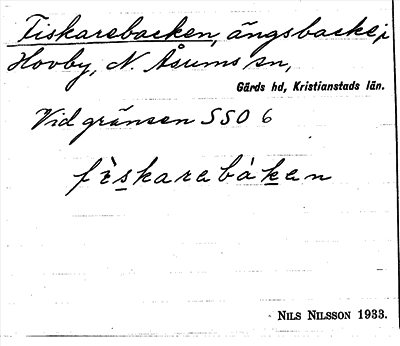 Fiskarebacken, ängsbacke, i
Hovby, N. Åsums sn,
Gärds hd, Kristianstads län.
Vid gränsen SSO 6
fìskarebáken
NILS NILSSON 1933.